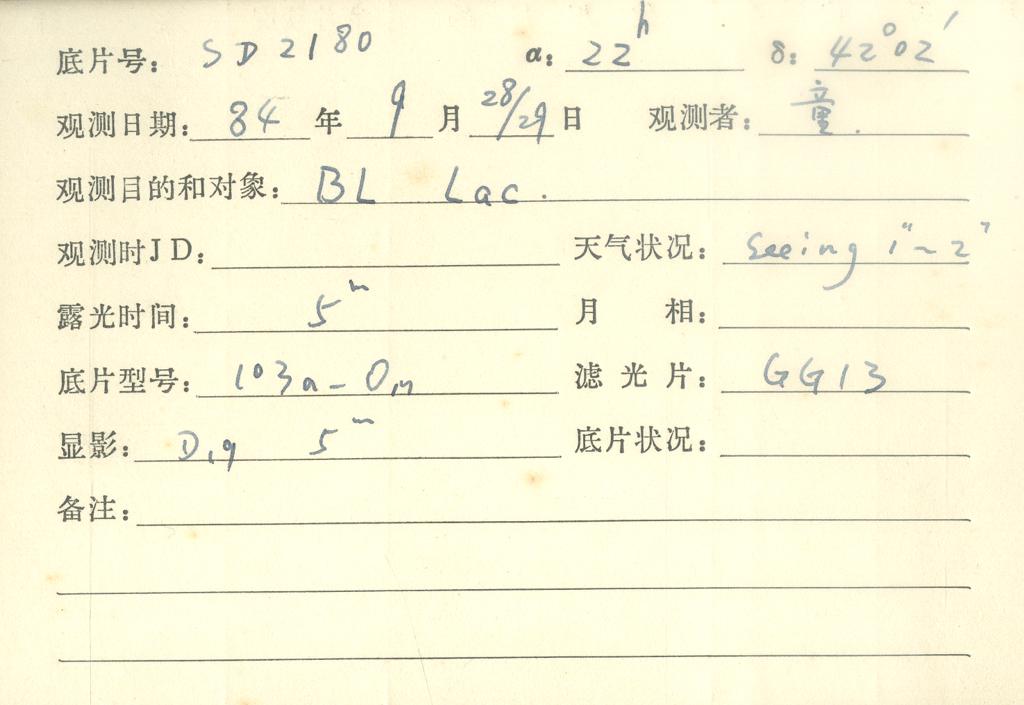 底片号: SD2180 α: 22ʰ δ: 42°02′
观测日期: 84 年 9 月 28/29 日 观测者: 童.
观测目的和对象: BL Lac.
观测时JD: 天气状况: Seeing 1"~2"
露光时间: 5ᵐ 月 相:
底片型号: 103a-O,, 滤光片: GG13
显影: D19 5ᵐ 底片状况:
备注: